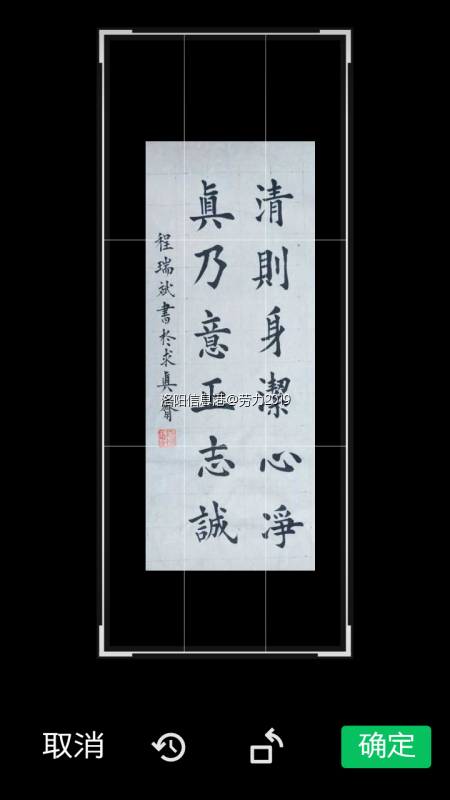 清則身潔心淨
眞乃意正志誠
程瑞斌書於求眞齋
洛阳信息港@劳力2019
取消
确定